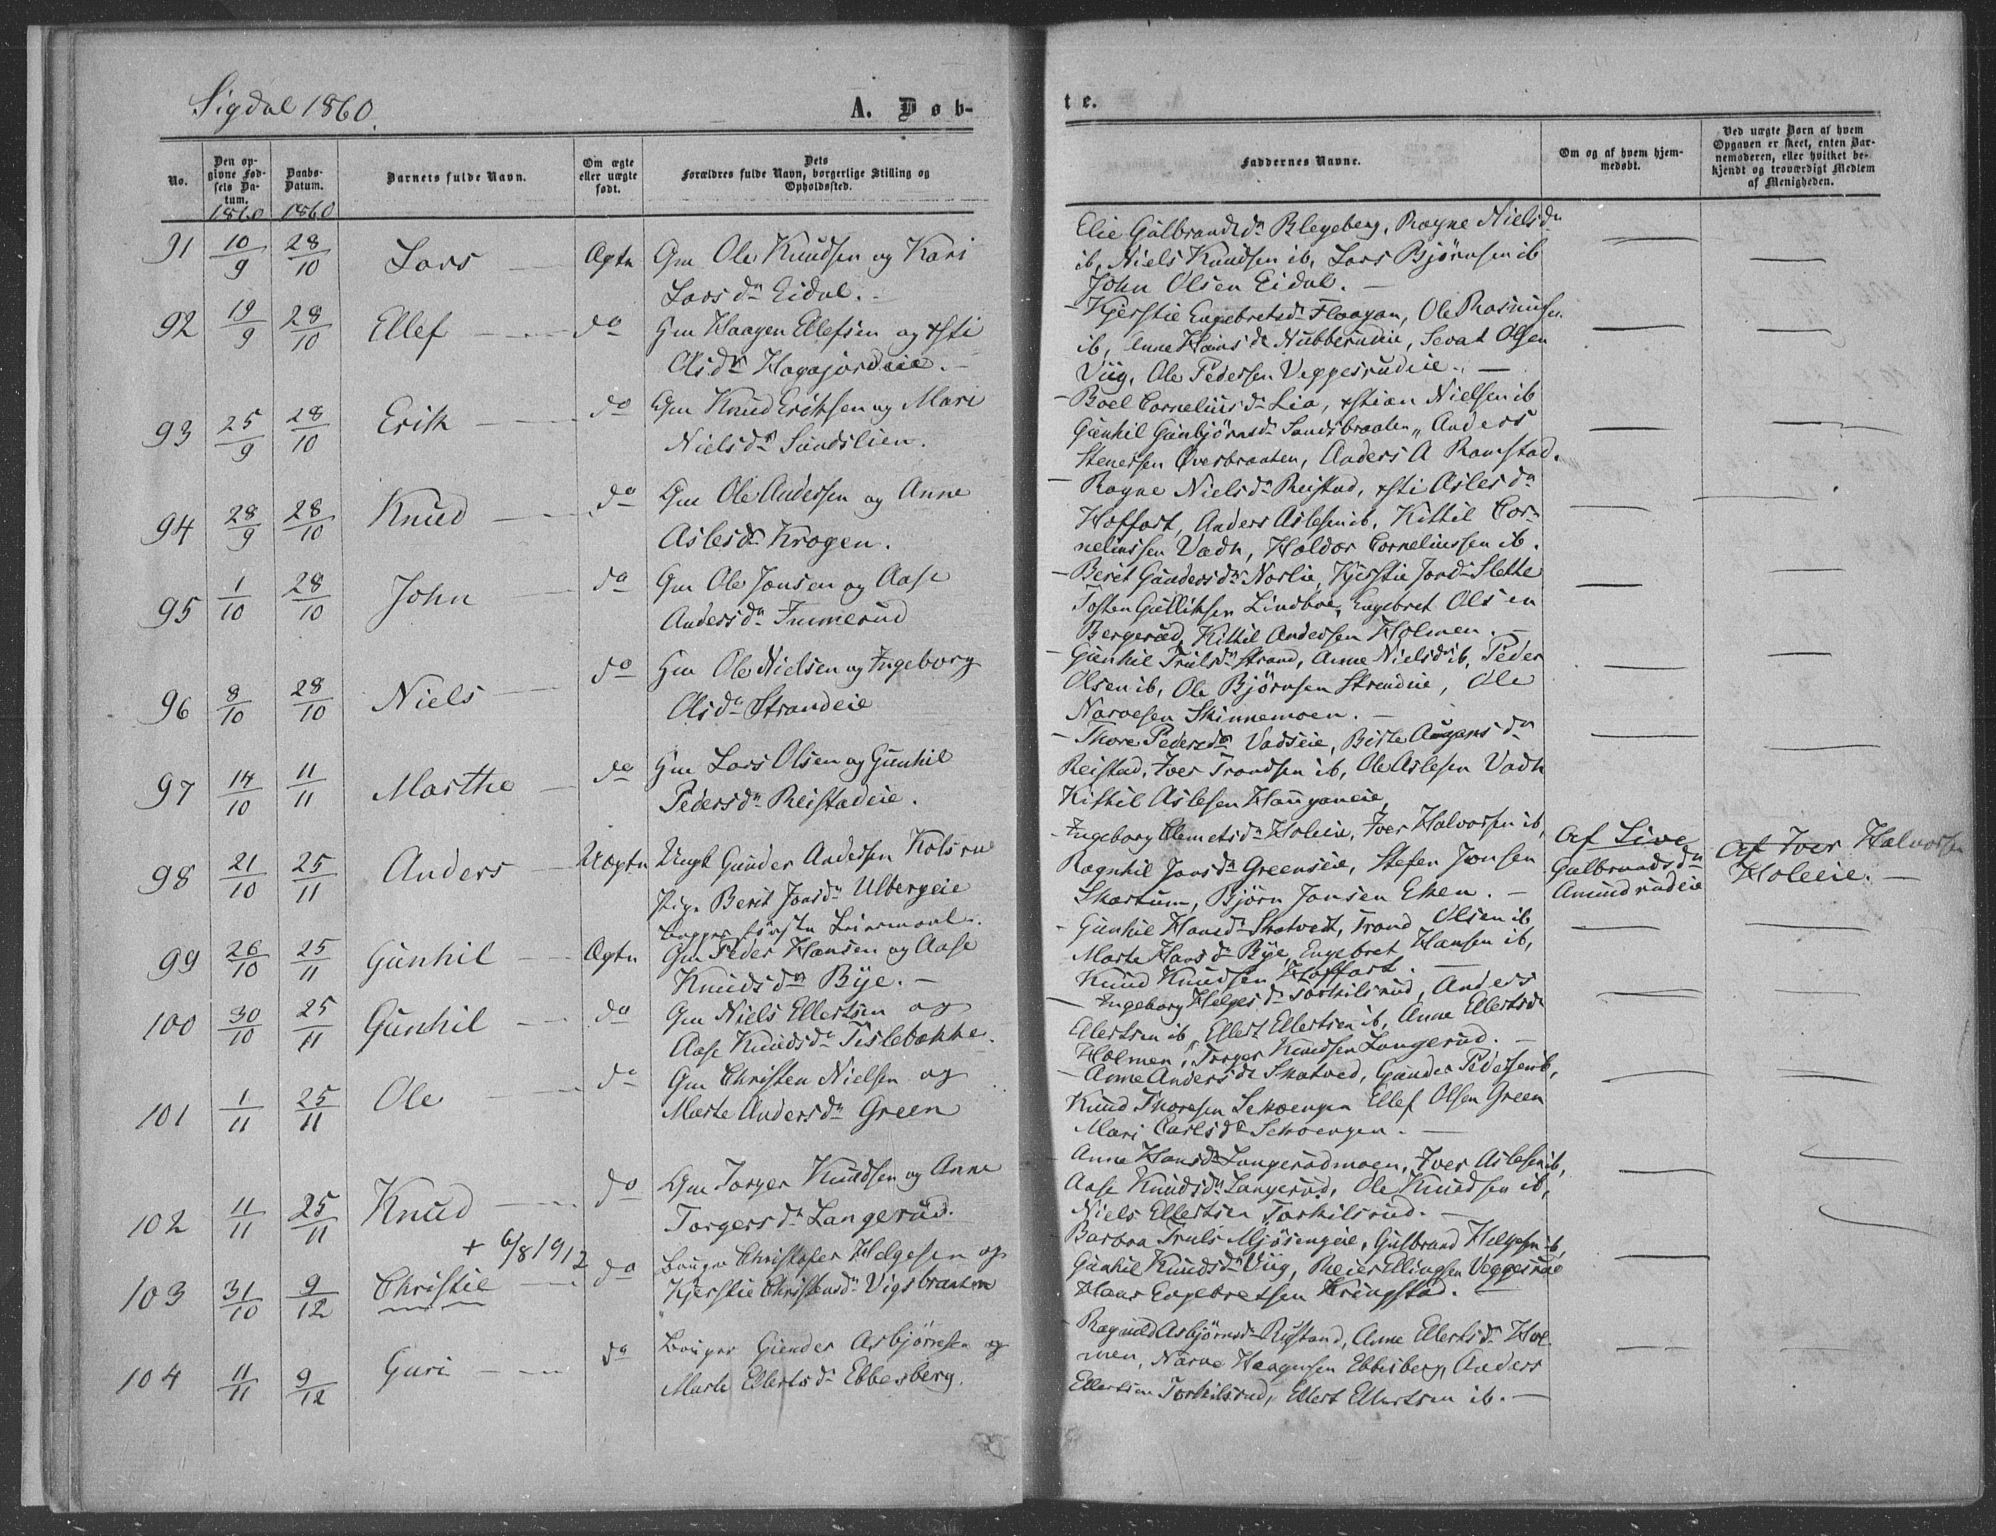 Sigdal 1860.
A. Døb-
te.
No.
Den op-
givne Fød-
sels Da-
tum.
Daabs-
Datum.
Barnets fulde Navn.
Om ægte
eller uægte
født.
Dets
Forældres fulde Navn, borgerlige Stilling og
Opholdssted.
Faddernes Navne.
Om og af hvem hjem-
medøbt.
Ved uægte Børn af hvem
Opgaven er skeet, enten Bar-
nemoderen, eller hvilket be-
kjendt og troværdigt Medlem
af Menigheden.
1860 1860
91 10/9 28/10 Lars Ægte Gm Ole Knudsen og Kari
Larsdr Eidal.
Elie Gulbrandsdr Blegeberg, Ragne Nielsdr
ib, Niels Knudsen ib, Lars Bjørnsen ib
John Olsen Eidal.
92 19/9 28/10 Ellef do Gm Haagen Ellefsen og Xsti
Olsdr Hagajordeie.
Kjerstie Engebretsdr Flaagan, Ole Rasmusen
ib, Anne Hansdr Nubberudeie, Sevat Olsen
Viig, Ole Pedersen Veggesrudeie.
93 25/9 28/10 Erik do Gm Knud Eriksen og Mari
Nielsdr Sundslien.
Boel Corneliusdr Lia, Xstian Nielsen ib
Gunhil Gunbjørnsdr Sandsbraaten, Anders
Stenersen Øverbraaten, Anders A Ramstad.
94 28/9 28/10 Knud do Gm Ole Andersen og Anne
Aslesdr Krogen.
Ragne Nielsdr Reistad, Xsti Aslesdr
Hoffart, Anders Aslesen ib, Kittil Cor-
neliussen Vadn, Haldor Corneliussen ib.
95 1/10 28/10 John do Gm Ole Jonsen og Aase
Andersdr Immerud
Berit Gundersdr Norlie, Kjerstie Jonsdr Slette
Tosten Gulliksen Lindboe, Engebret Olsen
Bergerud, Kittil Andersen Holmen.
96 8/10 28/10 Niels do Gm Ole Nielsen og Ingeborg
Olsdr Strandeie
Gunhil Trulsdr Strand, Anne Nielsdr ib, Peder
Olsen ib, Ole Bjørnsen Strandeie, Ole
Narvesen Skinnemoen.
97 14/10 11/11 Marthe do Gm Lars Olsen og Gunhil
Pedersdr Reistadeie.
Thore Pedersdr Vadseie, Birte Augensdr
Reistad, Iver Trondsen ib, Ole Aslesen Vadn
Kittil Aslesen Hauganeie,
98 21/10 25/11 Anders Uægte Ungk Gunder Andersen Kolsrud
Pige Berit Jonsdr Ulbergeie
Begges første Leiermaal.
Ingeborg Clemetsdr Holeie, Iver Halvorsen ib,
Ragnhil Jonsdr Greenseie, Stefen Jonsen
Skartum, Bjørn Jonsen Eken.
Af Live
Gulbrandsdr
Amundrudeie
Af Iver Halvorsen
Holeie.
99 26/10 25/11 Gunhil Ægte Gm Peder Hansen og Aase
Knudsdr Bye.
Gunhil Hansdr Skatvedt, Trond Olsen ib
Marte Hansdr Bye, Engebret Hansen ib,
Knud Knudsen Hoffart.
100 30/10 25/11 Gunhil do Gm Niels Ellertsen og
Aase Knudsdr Tislebække.
Ingeborg Helgesdr Torkilsrud, Anders
Alertsen ib, Ellert Ellertsen ib, Anne Ellertsdr
Holmen, Torger Knudsen Langerud.
101 1/11 25/11 Ole do Gm Christen Nielsen og
Marte Andersdr Green
Anne Andersdr Skatved, Gunder Pedersen ib,
Knud Thoresen Schoengen Ellef Olsen Green
Mari Carlsdr Schoengen.
102 11/11 25/11 Knud do Gm Torger Knudsen og Anne
Torgersdr Langerud.
Anne Hansdr Langerudmoen, Iver Aslesen ib,
Aase Knudsdr Langerud, Ole Knudsen ib,
Niels Ellertsen Torkilsrud.
+ 6/8 1912
103 31/10 9/12 Christie do Bruger Christofer Helgesen og
Kjerstie Christensdr Vigsbraaten
Barbra Truls Mjøsengeie, Gulbrand Helgesen ib,
Gunhil Knudsdr Viig, Reier Ellingsen Veggesrud
Hans Engebretsen Kringstad.
104 11/11 9/12 Guri do Bruger Gunder Asbjørnsen og
Marte Ellertsdr Ebbesberg.
Ragnild Asbjørnsdr Ristand, Anne Ellertsdr Hol-
men, Narve Haagensen Ebbesberg, Anders
Ellertsen Torkilsrud, Ellert Ellertsen ib.